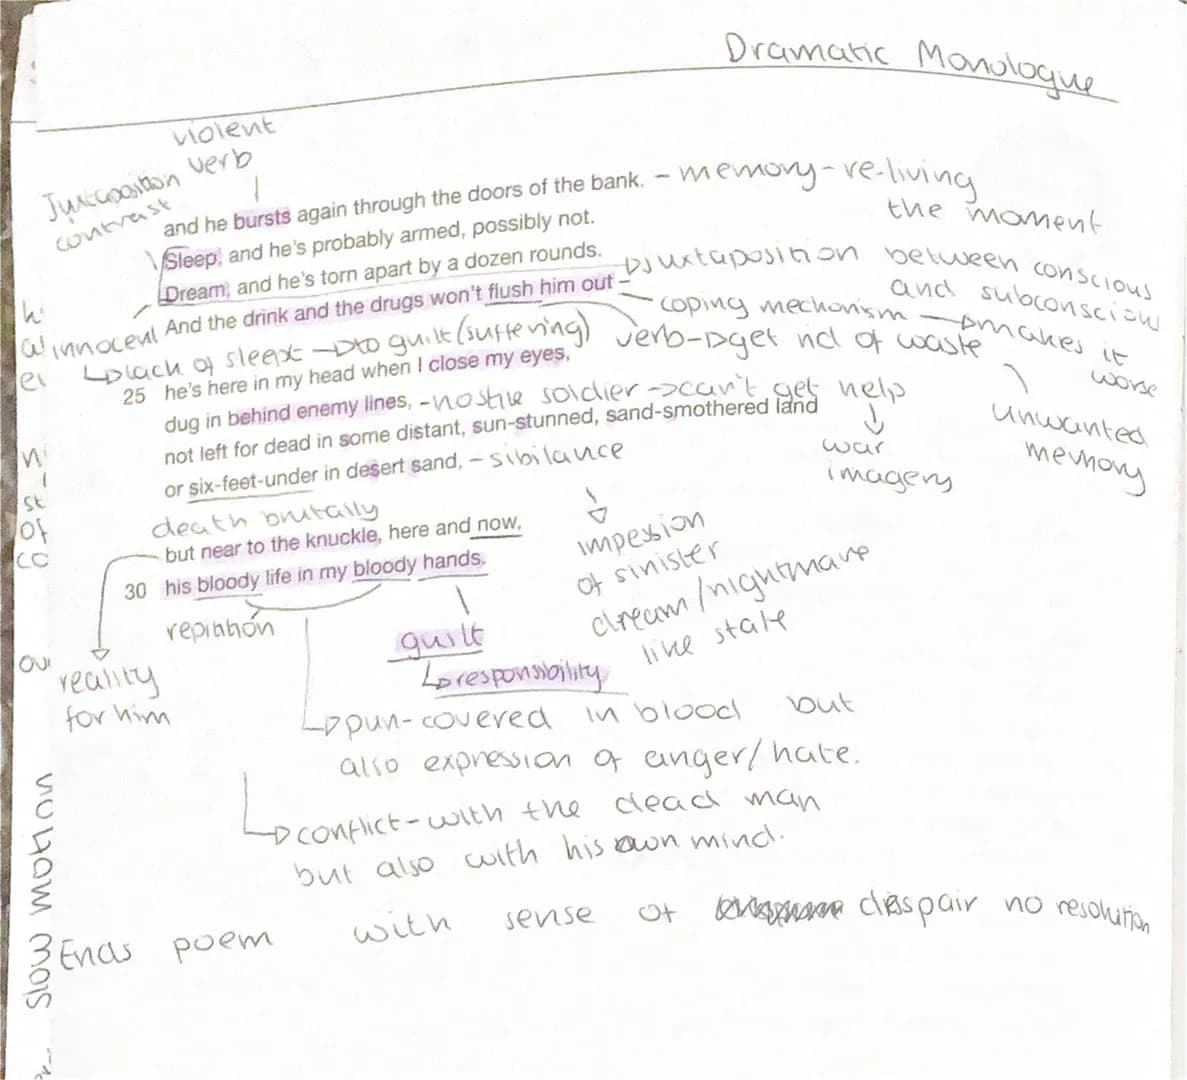 Dramatic Monologue
violent
verb
Juxtaposition
contrast
and he bursts again through the doors of the bank. - memory - re-living
the moment
Sleep, and he's probably armed, possibly not.
Dream, and he's torn apart by a dozen rounds.
juxtaposition between conscious
and subconsciou
And the drink and the drugs won't flush him out –
coping mechanism → makes it
worse
innocent
lack of sleep → to guilt (suffering)
verb → get rid of waste
unwanted
memory
25 he's here in my head when I close my eyes,
dug in behind enemy lines, - hostile soldier → can't get help
war
imagery
not left for dead in some distant, sun-stunned, sand-smothered land
or six-feet-under in desert sand, - sibilance
impession
of sinister
dream/nightmare
like state
death brutally
but near to the knuckle, here and now,
30 his bloody life in my bloody hands.
repitition
guilt
responsibility
reality
for him
pun - covered in blood but
also expression of anger/hate.
conflict - with the dead man
but also with his own mind.
Ends poem with sense of despair no resolution
slow motion
st
of
co
ou